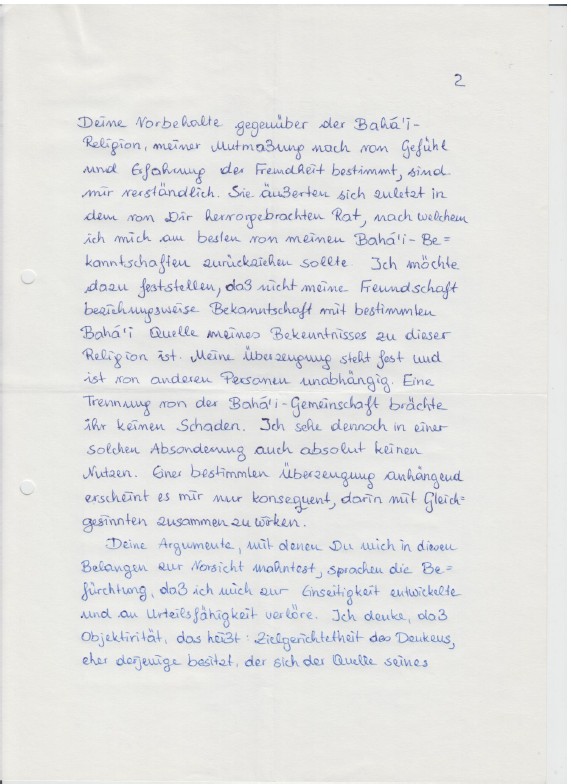 2
Deine Vorbehalte gegenüber der Bahá'í-
Religion, meiner Mutmaßung nach von Gefühl
und Erfahrung der Fremdheit bestimmt, sind
mir verständlich. Sie äußerten sich zuletzt in
dem von Dir hervorgebrachten Rat, nach welchem
ich mich am besten von meinen Bahá'í-Be=
kanntschaften zurückziehen sollte. Ich möchte
dazu feststellen, daß nicht meine Freundschaft
beziehungsweise Bekanntschaft mit bestimmten
Bahá'í Quelle meines Bekenntnisses zu dieser
Religion ist. Meine Überzeugung steht fest und
ist von anderen Personen unabhängig. Eine
Trennung von der Bahá'í-Gemeinschaft brächte
ihr keinen Schaden. Ich sehe dennoch in einer
solchen Absonderung auch absolut keinen
Nutzen. Einer bestimmten Überzeugung anhängend
erscheint es mir nur konsequent, darin mit Gleich=
gesinnten zusammen zu wirken.
Deine Argumente, mit denen Du mich in diesen
Belangen zur Vorsicht mahntest, sprachen die Be=
fürchtung, daß ich mich zur Einseitigkeit entwickelte
und an Urteilsfähigkeit verlöre. Ich denke, daß
Objektivität, das heißt: Zielgerichtetheit des Denkens,
eher derjenige besitzt, der sich der Quelle seines